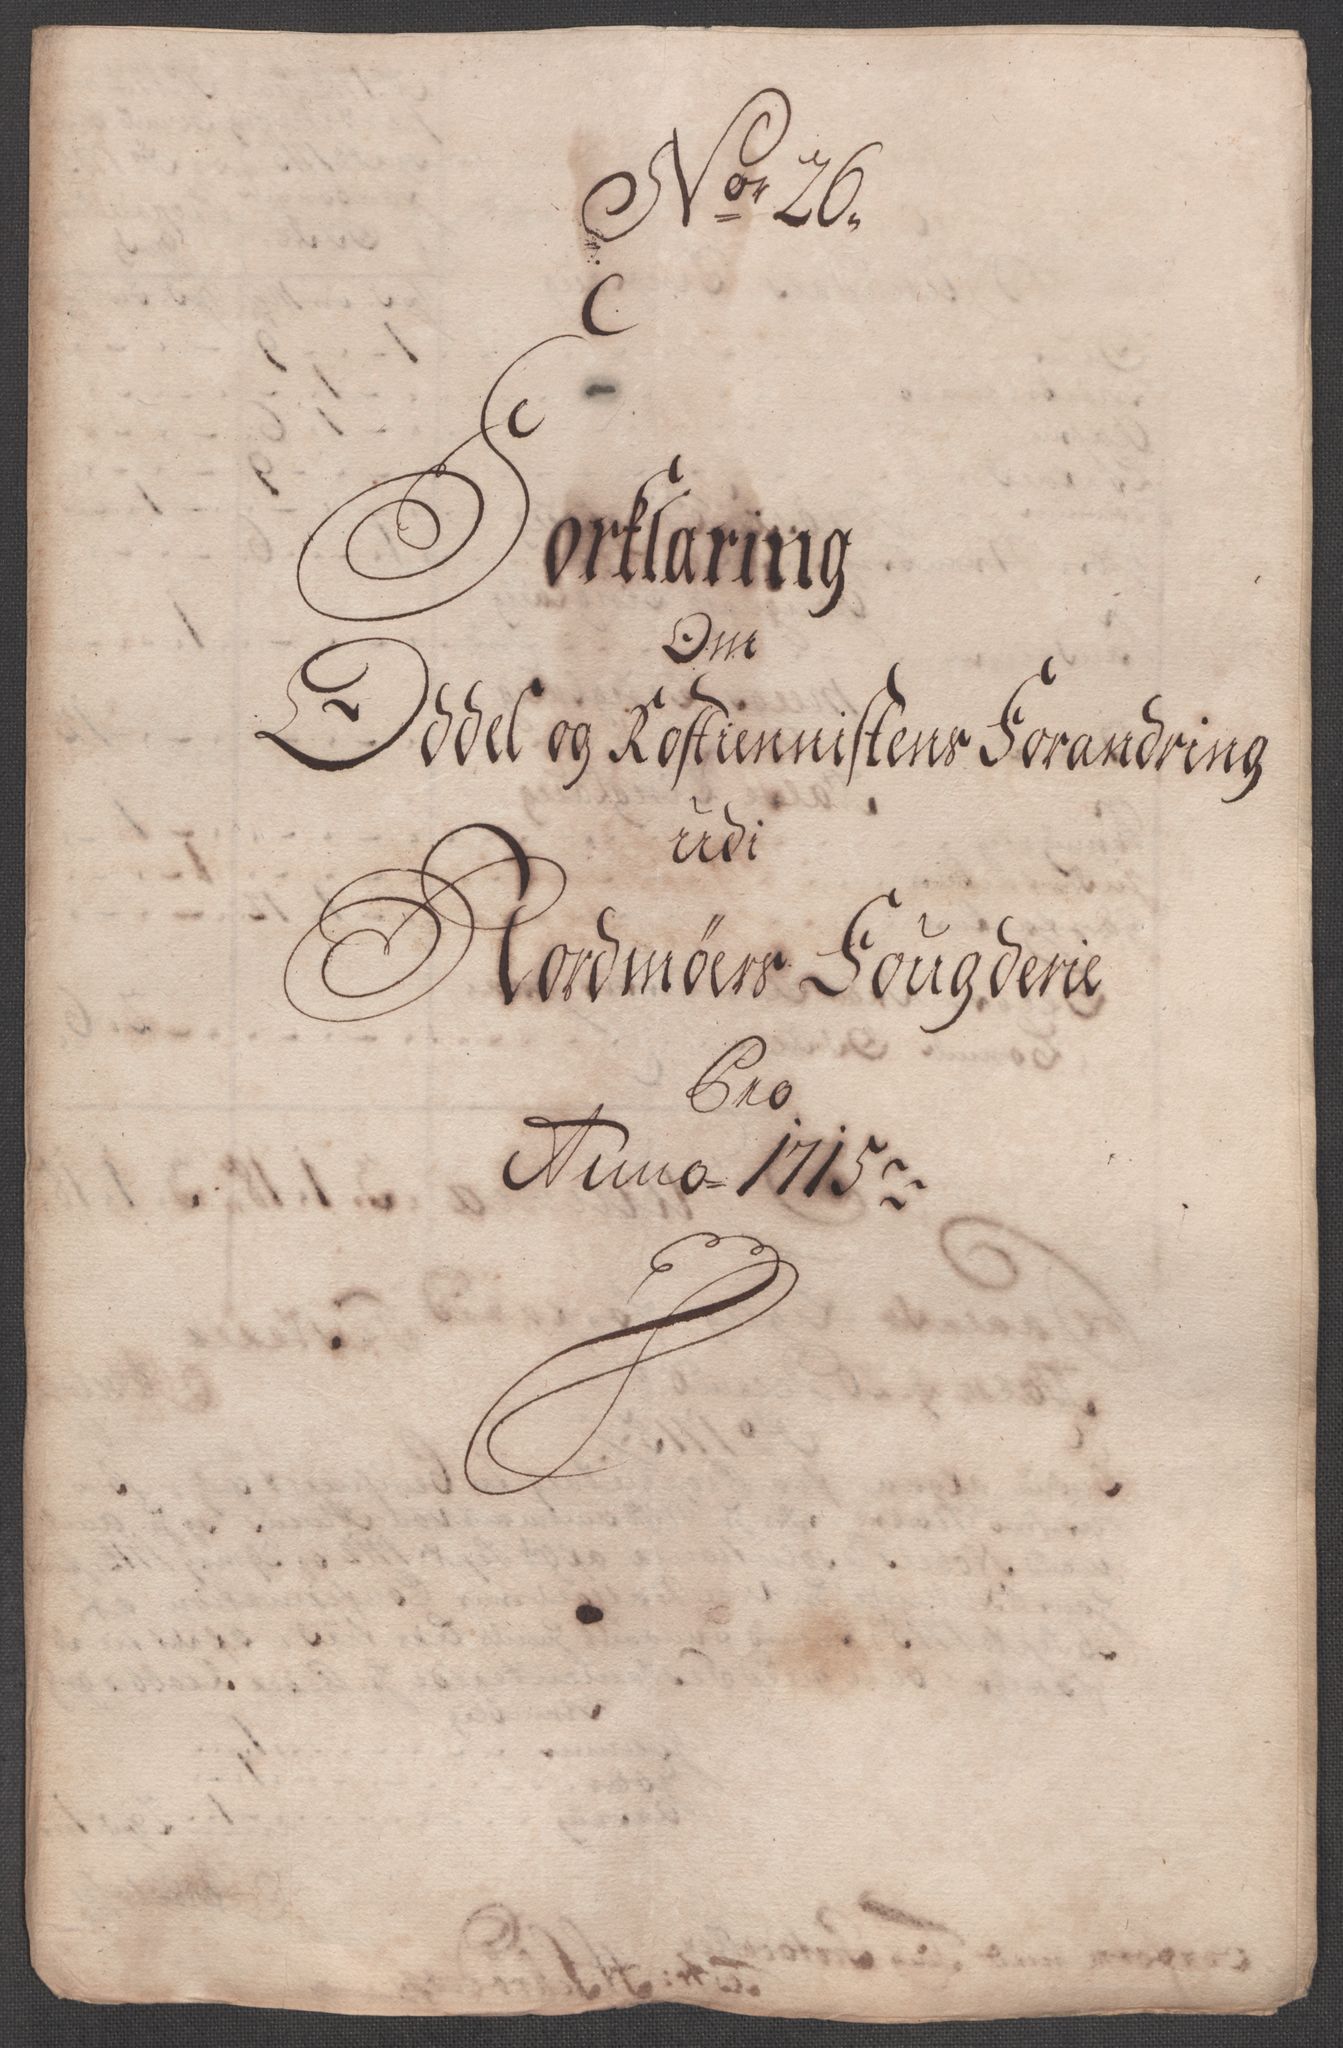 Nor 26.
Forklaring
Om
Oddel og Rostienistens Forandring
udi
Nordmöers Fougderie
Pro
Anno 1715